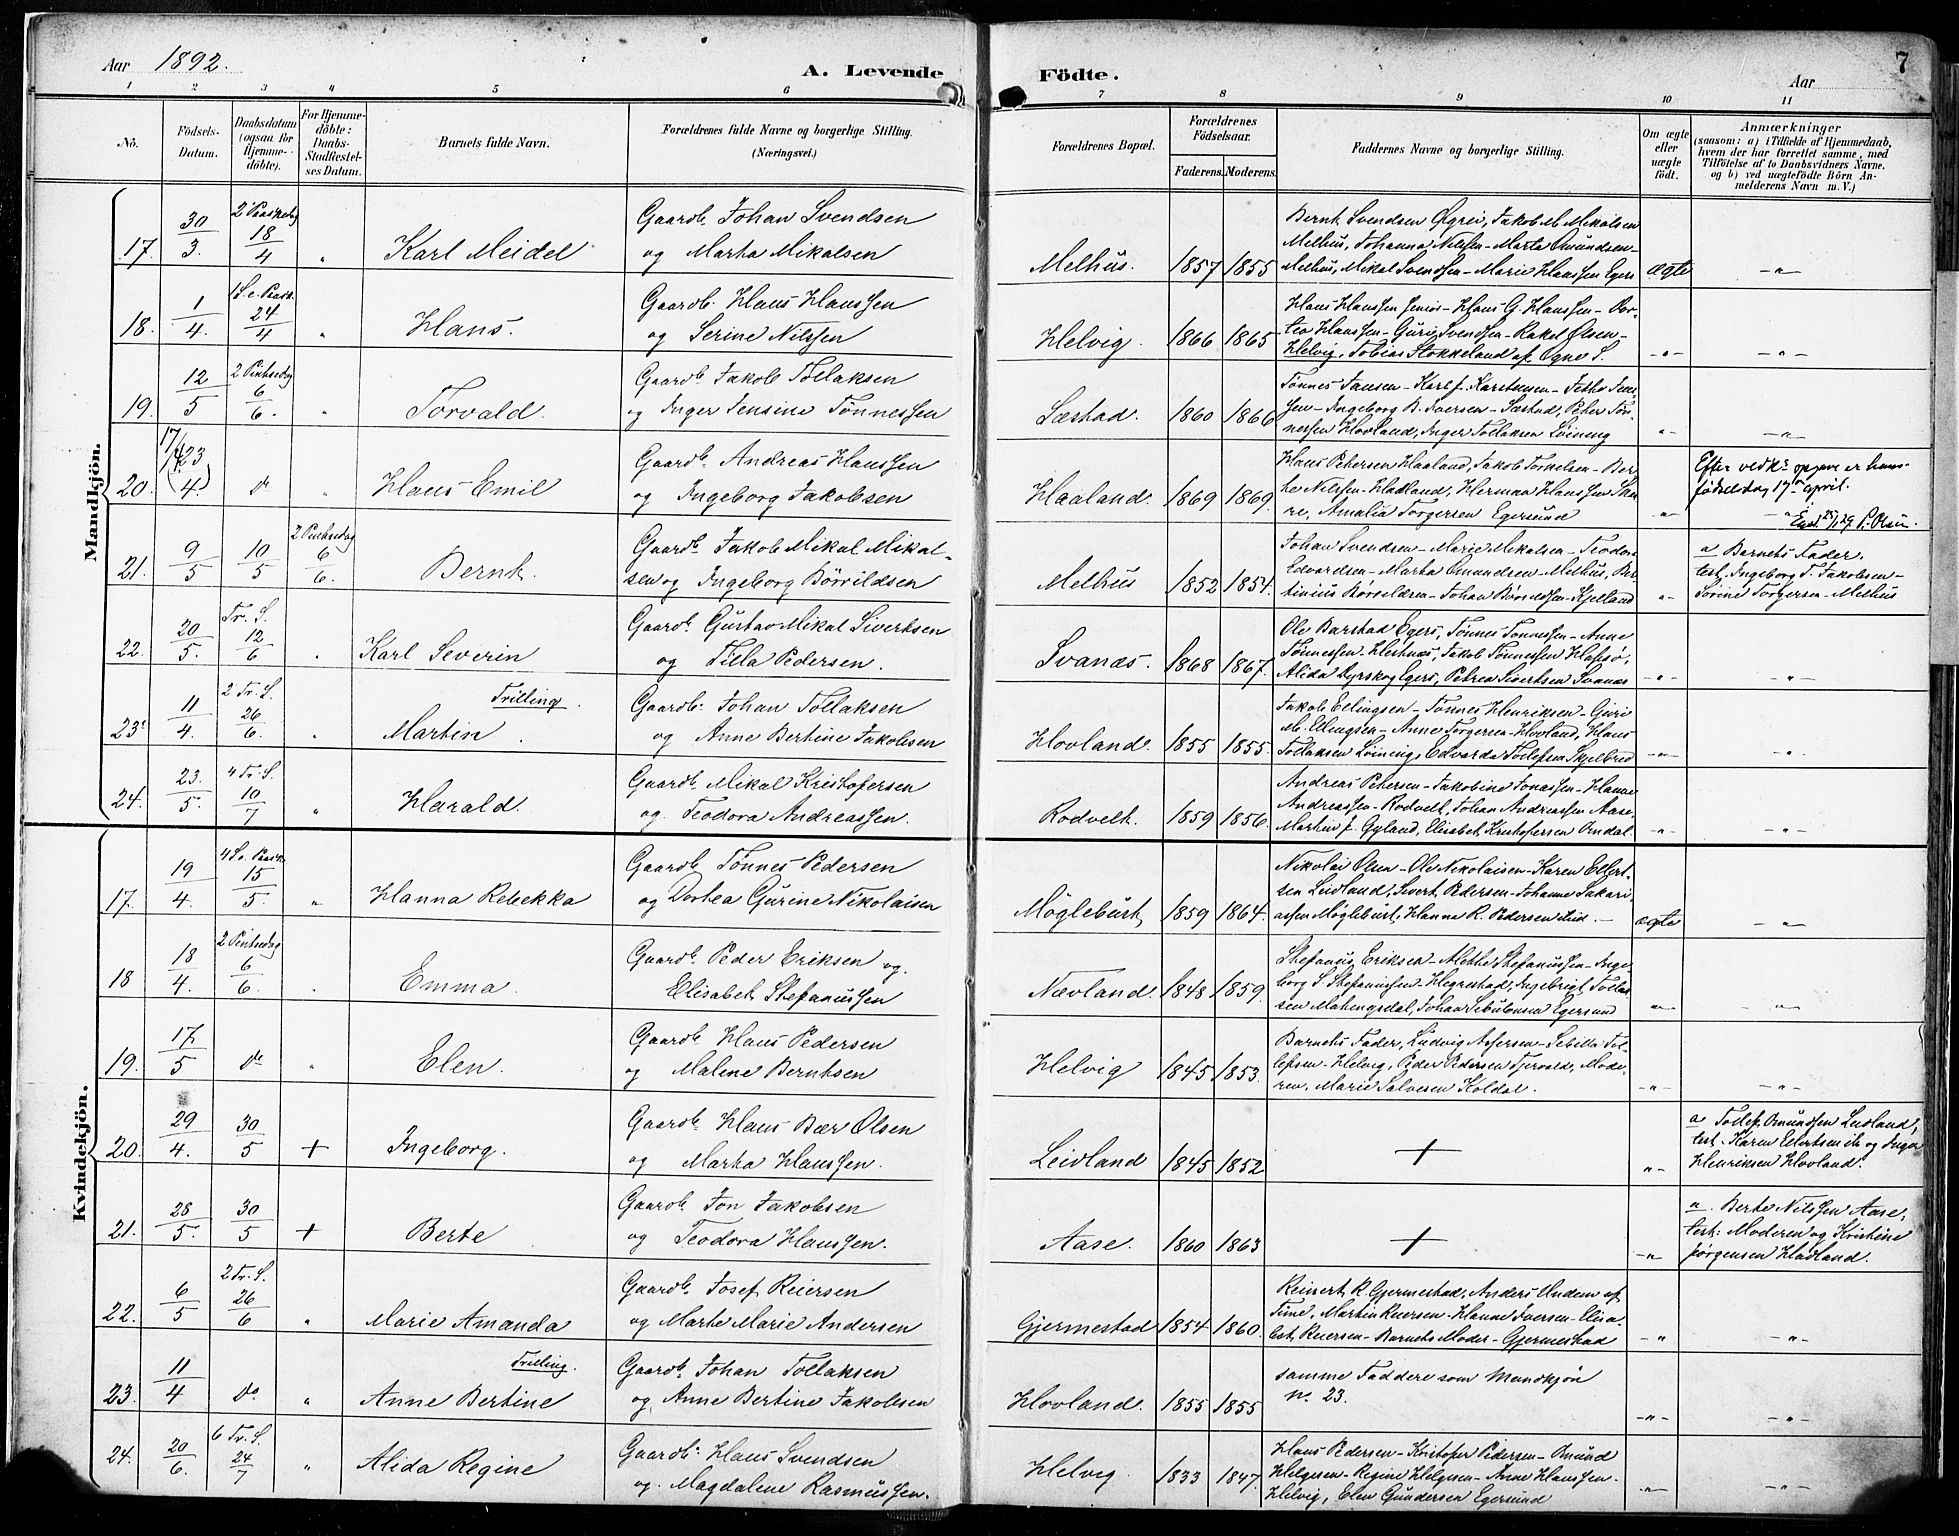 Aar 1892.
A. Levende
Födte.
Aar
7
1 2 3 4 5 6 7 8 9 10 11
No. Födsels-Datum. Daabsdatum (ogsaa for Hjemme-döbte). For Hjemme-döbte: Daabs-Stadfæstel-ses Datum. Barnets fulde Navn. Forældrenes fulde Navne og borgerlige Stilling. (Næringsvei.)
Forældrenes Bopæl. Forældrenes Födselsaar. Faderens. Moderens. Faddernes Navne og borgerlige Stilling. Om ægte eller uægte födt. Anmærkninger
(saasom: a) i Tilfælde af Hjemmedaab,
hvem der har forrettet samme, med
Tilföielse af to Daabsvidners Navne.
og b) ved uægtefödte Börn An-
melderens Navn m. V.)
Mandkjön.
17. 30/3. 2 Paaskedag 18/4 " Karl Meidel
Gaardb. Johan Svendsen
og Marta Mikalsen
Melhus. 1857 1855
Bernt Svendsen Øgrei, Jakob M. Mikalsen
Melhus, Johanna Nilssen - Marta Omundsen -
Melhus, Mikal Svendsen - Marie Hanssen Egers
ægte - " -
18. 1/4. 1 S. e. Paask. 24/4 " Hans.
Gaardb. Hans Hanssen
og Serine Nilssen
Helvig. 1866 1865
Hans Hanssen senior - Hans G. Hanssen - Dor-
tea Hanssen - Guri Svendsen - Rakel Olsen -
Helvig, Tobias Stokkeland af Ogne S.
- " - - " -
19. 12/5 2 Pintsedag 6/6. " Torvald.
Gaardb. Jakob Tollaksen
og Inger Jensine Tønnessen
Sæstad. 1860 1866
Tønnes Jansen - Karl J. Karstensen -
Ingeborg B. Iversen - Sæstad, Peter Tøn-
nessen Hovland, Inger Tollaksen Løining
- " - - " -
20. 17/4 (23/4.) do " Hans Emil
Gaardb. Andreas Hanssen
og Ingeborg Jakobsen
Haaland. 1869 1869
Hans Petersen Haaland, Jakob Torkelsen - Ber-
te Nilssen - Hadland, Herman Hanssen
Amalia Torgersen Egersund
- " -
Efter vedk. opgave er hans
fødselsdag 17 april.
Egsd. 25/1 29 P. Olsen.
21. 9/5 10/5 2 Pintsedag 6/6. Bernt.
Gaardb. Jakob Mikal Mikal-
sen og Ingeborg Børrildsen
Melhus 1852 1854
Johan Svendsen - Marie Mikalsen - Teodor
Edvardsen - Marta Omundsen - Melhus, Ber-
tinius Børrildsen - Johan Børrildsen - Kjelland
- " -
a Barnets Fader,
test. Ingeborg T. Jakobsen -
Sørine Torgersen - Melhus
22. 20/5. Tr. S. 12/6 " Karl Severin
Gaardb. Gustav Mikal Sivertsen
og Tilla Pedersen.
Svanæs. 1868 1867.
Ole Barstad Egers, Tønnes Tønnessen - Anne
Tønnessen - Hestnæs, Jakob Tønnessen Hafsø,
Alida Dyrskog Egers, Petrea Sivertsen Svanæs
- " - - " -
23. 11/4. 2 Tr. S. 26/6. " Martin Trilling.
Gaardb. Johan Tollaksen
og Anne Bertine Jakobsen
Hovland. 1855 1855.
Jakob Ellingsen - Tønnes Henriksen - Guri
M. Ellingsen - Anne Torgersen - Hovland, Hans
Tollaksen Løining, Edvarda Tollefsen Skjelbred
- " - "
24. 23./5. 4 Tr. S. 10/7 " Harald.
Gaardb. Mikal Kristofersen
og Teodora Andreassen.
Rodvelt. 1859 1856.
Andreas Petersen - Jakobine Jonassen - Hanne
Andreassen - Rodvelt, Johan Andreassen Aase,
Martin J. Gyland, Elisabet Kristofersen Omdal.
- " - - " -
Kvindekjön.
17. 19/4. 4 S. e. Paask. 15/5. " Hanna Rebekka
Gaardb. Tønnes Pedersen
og Dortea Gurine Nikolaisen
Møglebust 1859 1864.
Nikolai Olsen - Ole Nikolaisen - Karen Ellert-
sen Leidland, Sivert Pedersen - Johanne Sakari-
assen Møglebust, Hanna R. Pedersen
ægte - " -
18 18/4. 2 Pintsedag 6/6. " Emma.
Gaardb. Peder Eriksen og.
Elisabet Stefanussen
Nævland. 1848 1859.
Stefanus Eriksen - Alette Stefanussen - Inge-
borg S. Stefanussen - Hegrestad, Ingebrigt Tollef-
sen Mahingsdal, Johan Sebulonsen Egersund
- " - - " -
19. 17/5 do " Elen.
Gaardb. Hans Pedersen
og Malene Berntsen
Helvig 1845 1853.
Barnets Fader, Ludvig Assersen - Sebilla Tol-
lefsen - Helvig, Peder Pedersen Tjøvald, Mode-
ren, Marie Salvesen Koldal.
- " - - " -
20. 29/4. 30/5 + Ingeborg.
Gaardb. Hans Bær Olsen
og Marta Hanssen.
Leidland 1845 1852
+
- " -
a Tollef Omundsen Leidland,
test. Karen Elertsen ib og Inger
Henriksen Hovland.
21. 28/5. 30/5 + Berte
Gaardb. Jon Jakobsen
og Teodora Hanssen.
Aase. 1860 1863
+
- " -
a. Berte Nilssen Aase,
test: Moderen og Kristine
Jørgensen Hadland.
22. 6/5 2 Tr. S. 26/6 " Marie Amanda
Gaardb. Josef Reiersen
og Marte Marie Andersen
Gjermestad 1854 1860.
Reinert R. Gjermestad, Anders Undem af
Time, Martin Reiersen - Hanne Iversen - Elisa-
bet Reiersen - Barnets Moder - Gjermestad
- " - - " -
23 11/4 do " Anne Bertine Trilling.
Gaardb. Johan Tollaksen
og Anne Bertine Jakobsen
Hovland. 1855 1855
samme Faddere som Mandkjøn
no. 23.
- " - - " -
24. 20/6. 6 Tr. S. 24/7 " Alida Regine
Gaardb. Hans Svendsen
og Magdalene Rasmussen.
Helvig. 1833 1847.
Hans Pedersen - Kristofer Pedersen - Omund
Helgesen - Regine Helgesen - Anne Hanssen -
Helvig, Elen Gundersen Egersund
- " - - " -